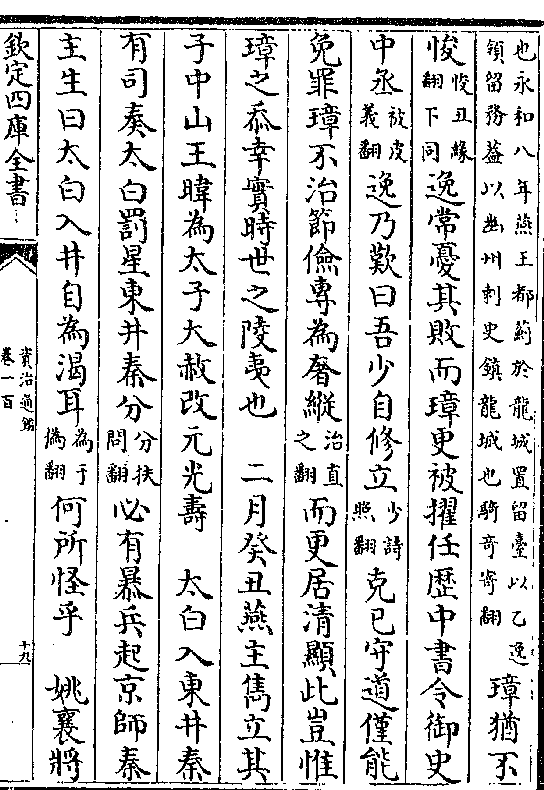 也永和八年燕王都薊於龍城置留臺以乙逸
領留務葢以幽州刺史鎮龍城也騎奇寄翻 璋猶不
悛悛丑緣翻下同逸常憂其敗而璋更被擢任歷中書令御史
中丞被皮義翻逸乃歎曰吾少自修立少詩照翻克已守道僅能
免罪璋不治節儉專為奢縱治直之翻而更居清顯此豈惟
璋之忝幸實時世之陵夷也 二月癸丑燕主雋立其
子中山王暐為太子大赦改元光壽 太白入東井秦
有司奏太白罰星東井秦分分扶問翻必有暴兵起京師秦
主生曰太白入井自為渴耳為于偽翻何所怪乎 姚襄將
欽定四庫全書
資治通鑑
卷一百
十九